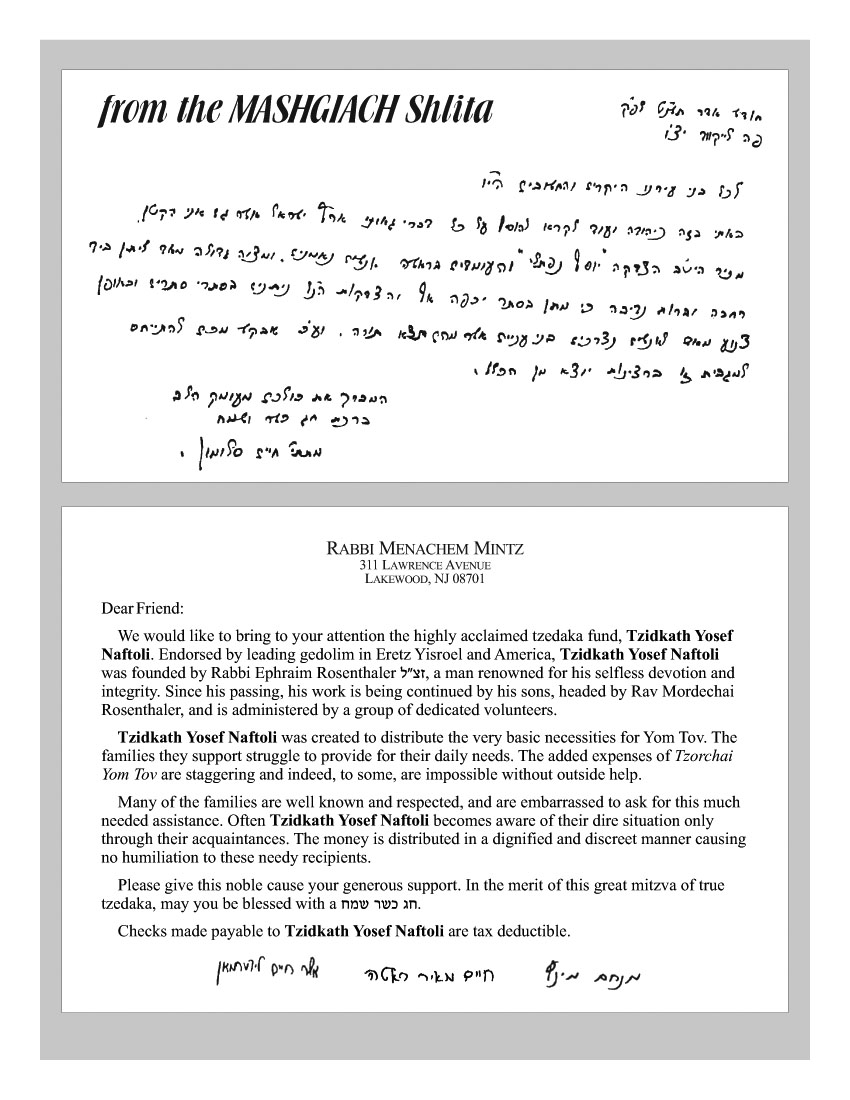 from the MASHGIACH Shlita
חודש אדר לפ"ק
פה לייקוואוד יצ"ו
לכל בני עירנו היקרים והחשובים הי"ו
באתי בזה כיהודה ועוד לקרא להוסיף על כל דברי גאוני ארץ ישראל אשר גם אני הקטן
מכיר היטב הצדקה "יוסף נפתלי" והעומדים בראשה אנשים נאמנים. ומצוה גדולה מאד ליתן ביד
רחבה וברוח נדיבה כי מתן בסתר יכפה אף והצדקות הנ"ל ניתנים בסתרי סתרים ובאופן
צנוע מאד לאנשים נצרכים בני עניים אשר מהן תצא תורה. וע"כ אבקש מכם להתייחס
למגבית זו ברצינות יוצא מן הכלל.
המברך את כולכם מעומק הלב
ברכת חג כשר ושמח
מתתי' חיים סלומון
RABBI MENACHEM MINTZ
311 LAWRENCE AVENUE
LAKEWOOD, NJ 08701
Dear Friend:
We would like to bring to your attention the highly acclaimed tzedaka fund, Tzidkath Yosef
Naftoli. Endorsed by leading gedolim in Eretz Yisroel and America, Tzidkath Yosef Naftoli
was founded by Rabbi Ephraim Rosenthaler זצ"ל, a man renowned for his selfless devotion and
integrity. Since his passing, his work is being continued by his sons, headed by Rav Mordechai
Rosenthaler, and is administered by a group of dedicated volunteers.
Tzidkath Yosef Naftoli was created to distribute the very basic necessities for Yom Tov. The
families they support struggle to provide for their daily needs. The added expenses of Tzorchai
Yom Tov are staggering and indeed, to some, are impossible without outside help.
Many of the families are well known and respected, and are embarrassed to ask for this much
needed assistance. Often Tzidkath Yosef Naftoli becomes aware of their dire situation only
through their acquaintances. The money is distributed in a dignified and discreet manner causing
no humiliation to these needy recipients.
Please give this noble cause your generous support. In the merit of this great mitzva of true
tzedaka, may you be blessed with a חג כשר שמח.
Checks made payable to Tzidkath Yosef Naftoli are tax deductible.
מנחם מינץ חיים מאיר ראטה חיים